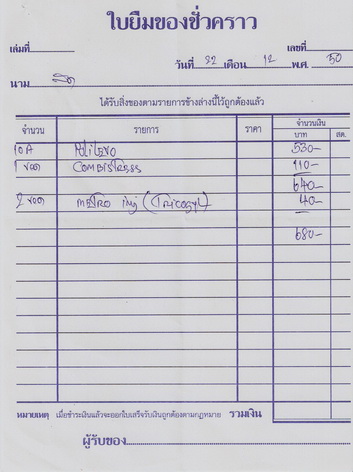 ใบยืมของชั่วคราว
เล่มที่ เลขที่
วันที่ 22 เดือน 12 พ.ศ. 50
นาม
ได้รับสิ่งของตามรายการข้างล่างนี้ไว้ถูกต้องแล้ว
จำนวน รายการ ราคา จำนวนเงิน
บาท สต.
10 530-
1 ขวด COMBISTRESS 110-
640-
2 ขวด METRO inj 40-
680-
หมายเหตุ เมื่อชำระเงินแล้วจะออกใบเสร็จรับเงินถูกต้องตามกฎหมาย รวมเงิน
ผู้รับของ